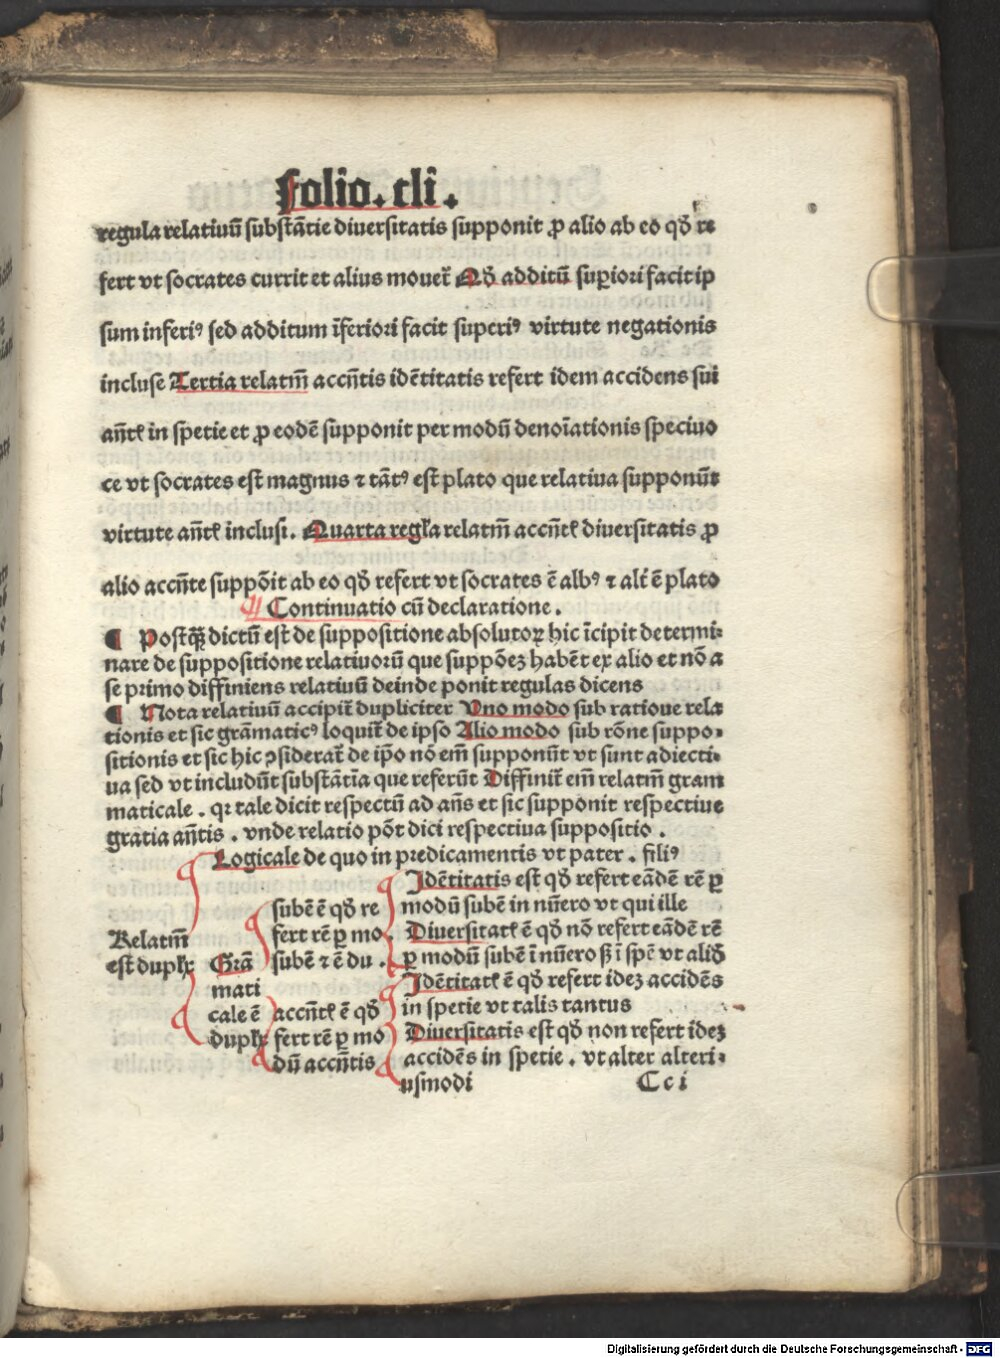 folio. cli.
regula relatiuū substātie diuersitatis supponit ꝓ alio ab eo qđ re
fert vt socrates currit et alius mouet̄ Nō additū suꝑiori facit ip
sum inferiꝰ sed additum īferiori facit superiꝰ virtute negationis
incluse Tertia relatm̄ accn̄tis idētitatis refert idem accidens sui
an̄tꝭ in spetie et ꝓ eodē supponit per modū denoīationis speciuo
ce vt socrates est magnus ⁊ tātꝰ est plato que relatiua supponūt
virtute an̄tꝭ inclusi. Quarta regl̄a relatm̄ accn̄tꝭ diuersitatis ꝓ
alio accn̄te suppōit ab eo qđ refert vt socrates ē albꝰ ⁊ alꝰ ē plato
¶ Continuatio cū declaratione.
¶ Postq̄ꝫ dictū est de suppositione absolutoꝝ hic īcipit determi-
nare de suppositione relatiuorū que suppōeꝫ habēt ex alio et nō a
se primo diffiniens relatiuū deinde ponit regulas dicens
¶ Nota relatiuū accipit̄ dupliciter Uno modo sub ratioue rela
tionis et sic grāmaticꝰ loquit̄ de ipso Alio modo sub rōne suppo-
sitionis et sic hic ꝯsiderat̄ de ip̄o nō em̄ supponūt vt sunt adiecti-
ua sed vt includūt substātīa que referūt Diffinit̄ em̄ relatm̄ gram
maticale. qꝛ tale dicit respectū ad an̄s et sic supponit respectiue
gratia an̄tis. vnde relatio pōt dici respectiua suppositio.
Logicale de quo in predicamentis vt pater. filiꝰ
Relatm̄
est duplx̄
Grā
mati
cale ē
duplx̄
subē ē qđ re
fert rē ꝑ mo
subē ⁊ ē du.
Idētitatis est qđ refert eādē rē ꝑ
modū subē in nūero vt qui ille
Diuersitatꝭ ē qđ nō refert eādē rē
ꝑ modū subē ī nūero sꝫ ī spē vt aliđ
accn̄tꝭ ē qđ
fert rē ꝑ mo
dū accn̄tis
Idētitatꝭ ē qđ refert ideꝫ accidēs
in spetie vt talis tantus
Diuersitatis est qđ non refert ideꝫ
accidēs in spetie. vt alter alteri-
usmodi
Cc i
Digitalisierung gefördert durch die Deutsche Forschungsgemeinschaft - DFG